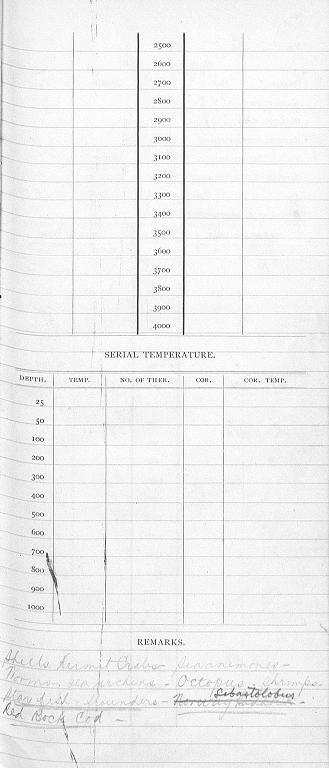 2500
2600
2700
2800
2900
3000
3100
3200
3300
3400
3500
3600
3700
3800
3900
4000
SERIAL TEMPERATURE.
DEPTH. TEMP. NO. OF THER. COR. COR. TEMP.
25
50
100
200
300
400
500
600
700
800
900
1000
REMARKS.
Shells Hermit Crabs - Sea anemones -
Worms. sea urchins - Octopus - shrimps -
Sebastolobus
flounders -
Red Rock Cod -